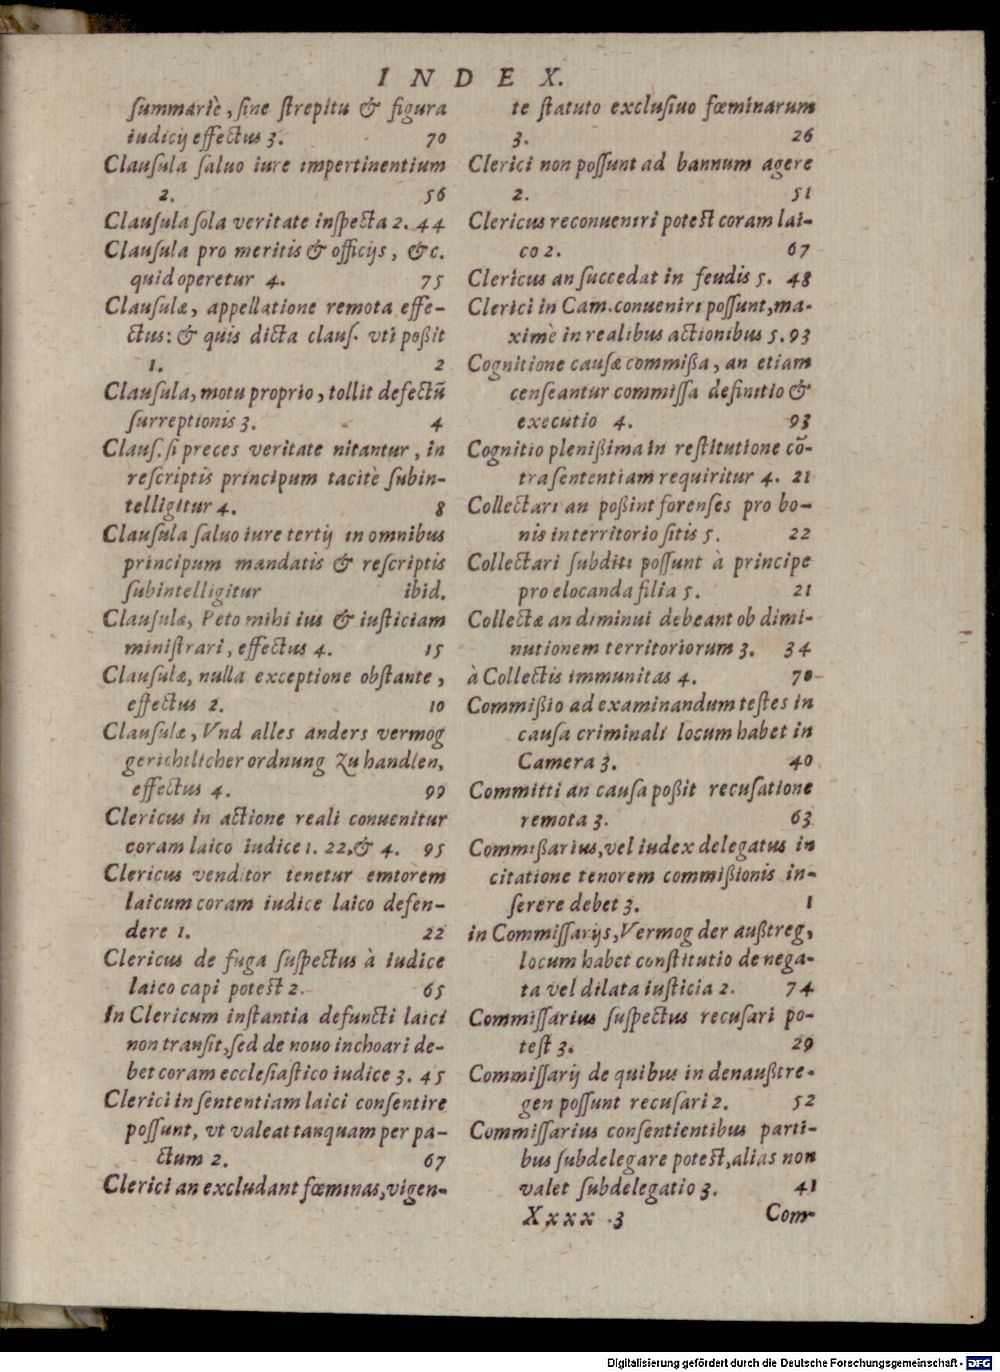 INDEX.
ſummariè, ſine ſtrepitu & figura
iudicij effectus 3. 70
Clauſula ſaluo iure impertinentium
2. 56
Clauſula ſola veritate inſpecta 2. 44
Clauſula pro meritis & officijs, &c.
quid operetur 4. 75
Clauſulæ, appellatione remota effe-
ctus: & quis dicta clauſ. vti poßit
1. 2
Clauſula, motu proprio, tollit defectũ
ſurreptionis 3. 4
Clauſ. ſi preces veritate nitantur, in
reſcriptis principum tacitè ſubin-
telligitur 4. 8
Clauſula ſaluo iure tertij in omnibus
principum mandatis & reſcriptis
ſubintelligitur ibid.
Clauſulæ, Peto mihi ius & iuſticiam
miniſtrari, effectus 4. 15
Clauſulæ, nulla exceptione obſtante,
effectus 2. 10
Clauſulæ, Vnd alles anders vermog
gerichtlicher ordnung zu handlen,
effectus 4. 99
Clericus in actione reali conuenitur
coram laico iudice 1. 22. & 4. 95
Clericus venditor tenetur emtorem
laicum coram iudice laico defen-
dere 1. 22
Clericus de fuga ſuſpectus à iudice
laico capi poteſt 2. 65
In Clericum inſtantia defuncti laici
non tranſit, ſed de nouo inchoari de-
bet coram eccleſiaſtico iudice 3. 45
Clerici in ſententiam laici conſentire
poſſunt, vt valeat tanquam per pa-
ctum 2. 67
Clerici an excludant fœminas, vigen-
te ſtatuto excluſiuo fœminarum
3. 26
Clerici non poſſunt ad bannum agere
2. 51
Clericus reconueniri poteſt coram lai-
co 2. 67
Clericus an ſuccedat in feudis 5. 48
Clerici in Cam. conueniri poſſunt, ma-
ximè in realibus actionibus 5. 93
Cognitione cauſæ commißa, an etiam
cenſeantur commiſſa definitio &
executio 4. 93
Cognitio plenißima in reſtitutione cõ-
tra ſententiam requiritur 4. 21
Collectari an poßint forenſes pro bo-
nis in territorio ſitis 5. 22
Collectari ſubditi poſſunt à principe
pro elocanda filia 5. 21
Collectæ an diminui debeant ob dimi-
nutionem territoriorum 3. 34
à Collectis immunitas 4. 70
Commißio ad examinandum teſtes in
cauſa criminali locum habet in
Camera 3. 40
Committi an cauſa poßit recuſatione
remota 3. 63
Commißarius, vel iudex delegatus in
citatione tenorem commißionis in-
ſerere debet 3. 1
in Commiſſarijs, Vermog der außtreg,
locum habet conſtitutio de nega-
ta vel dilata iuſticia 2. 74
Commiſſarius ſuſpectus recuſari po-
teſt 3. 29
Commiſſarij de quibus in den außtre-
gen poſſunt recuſari 2. 52
Commiſſarius conſentientibus parti-
bus ſubdelegare poteſt, alias non
valet ſubdelegatio 3. 41
Xxxx 3 Com-
Digitalisierung gefördert durch die Deutsche Forschungsgemeinschaft - DFG